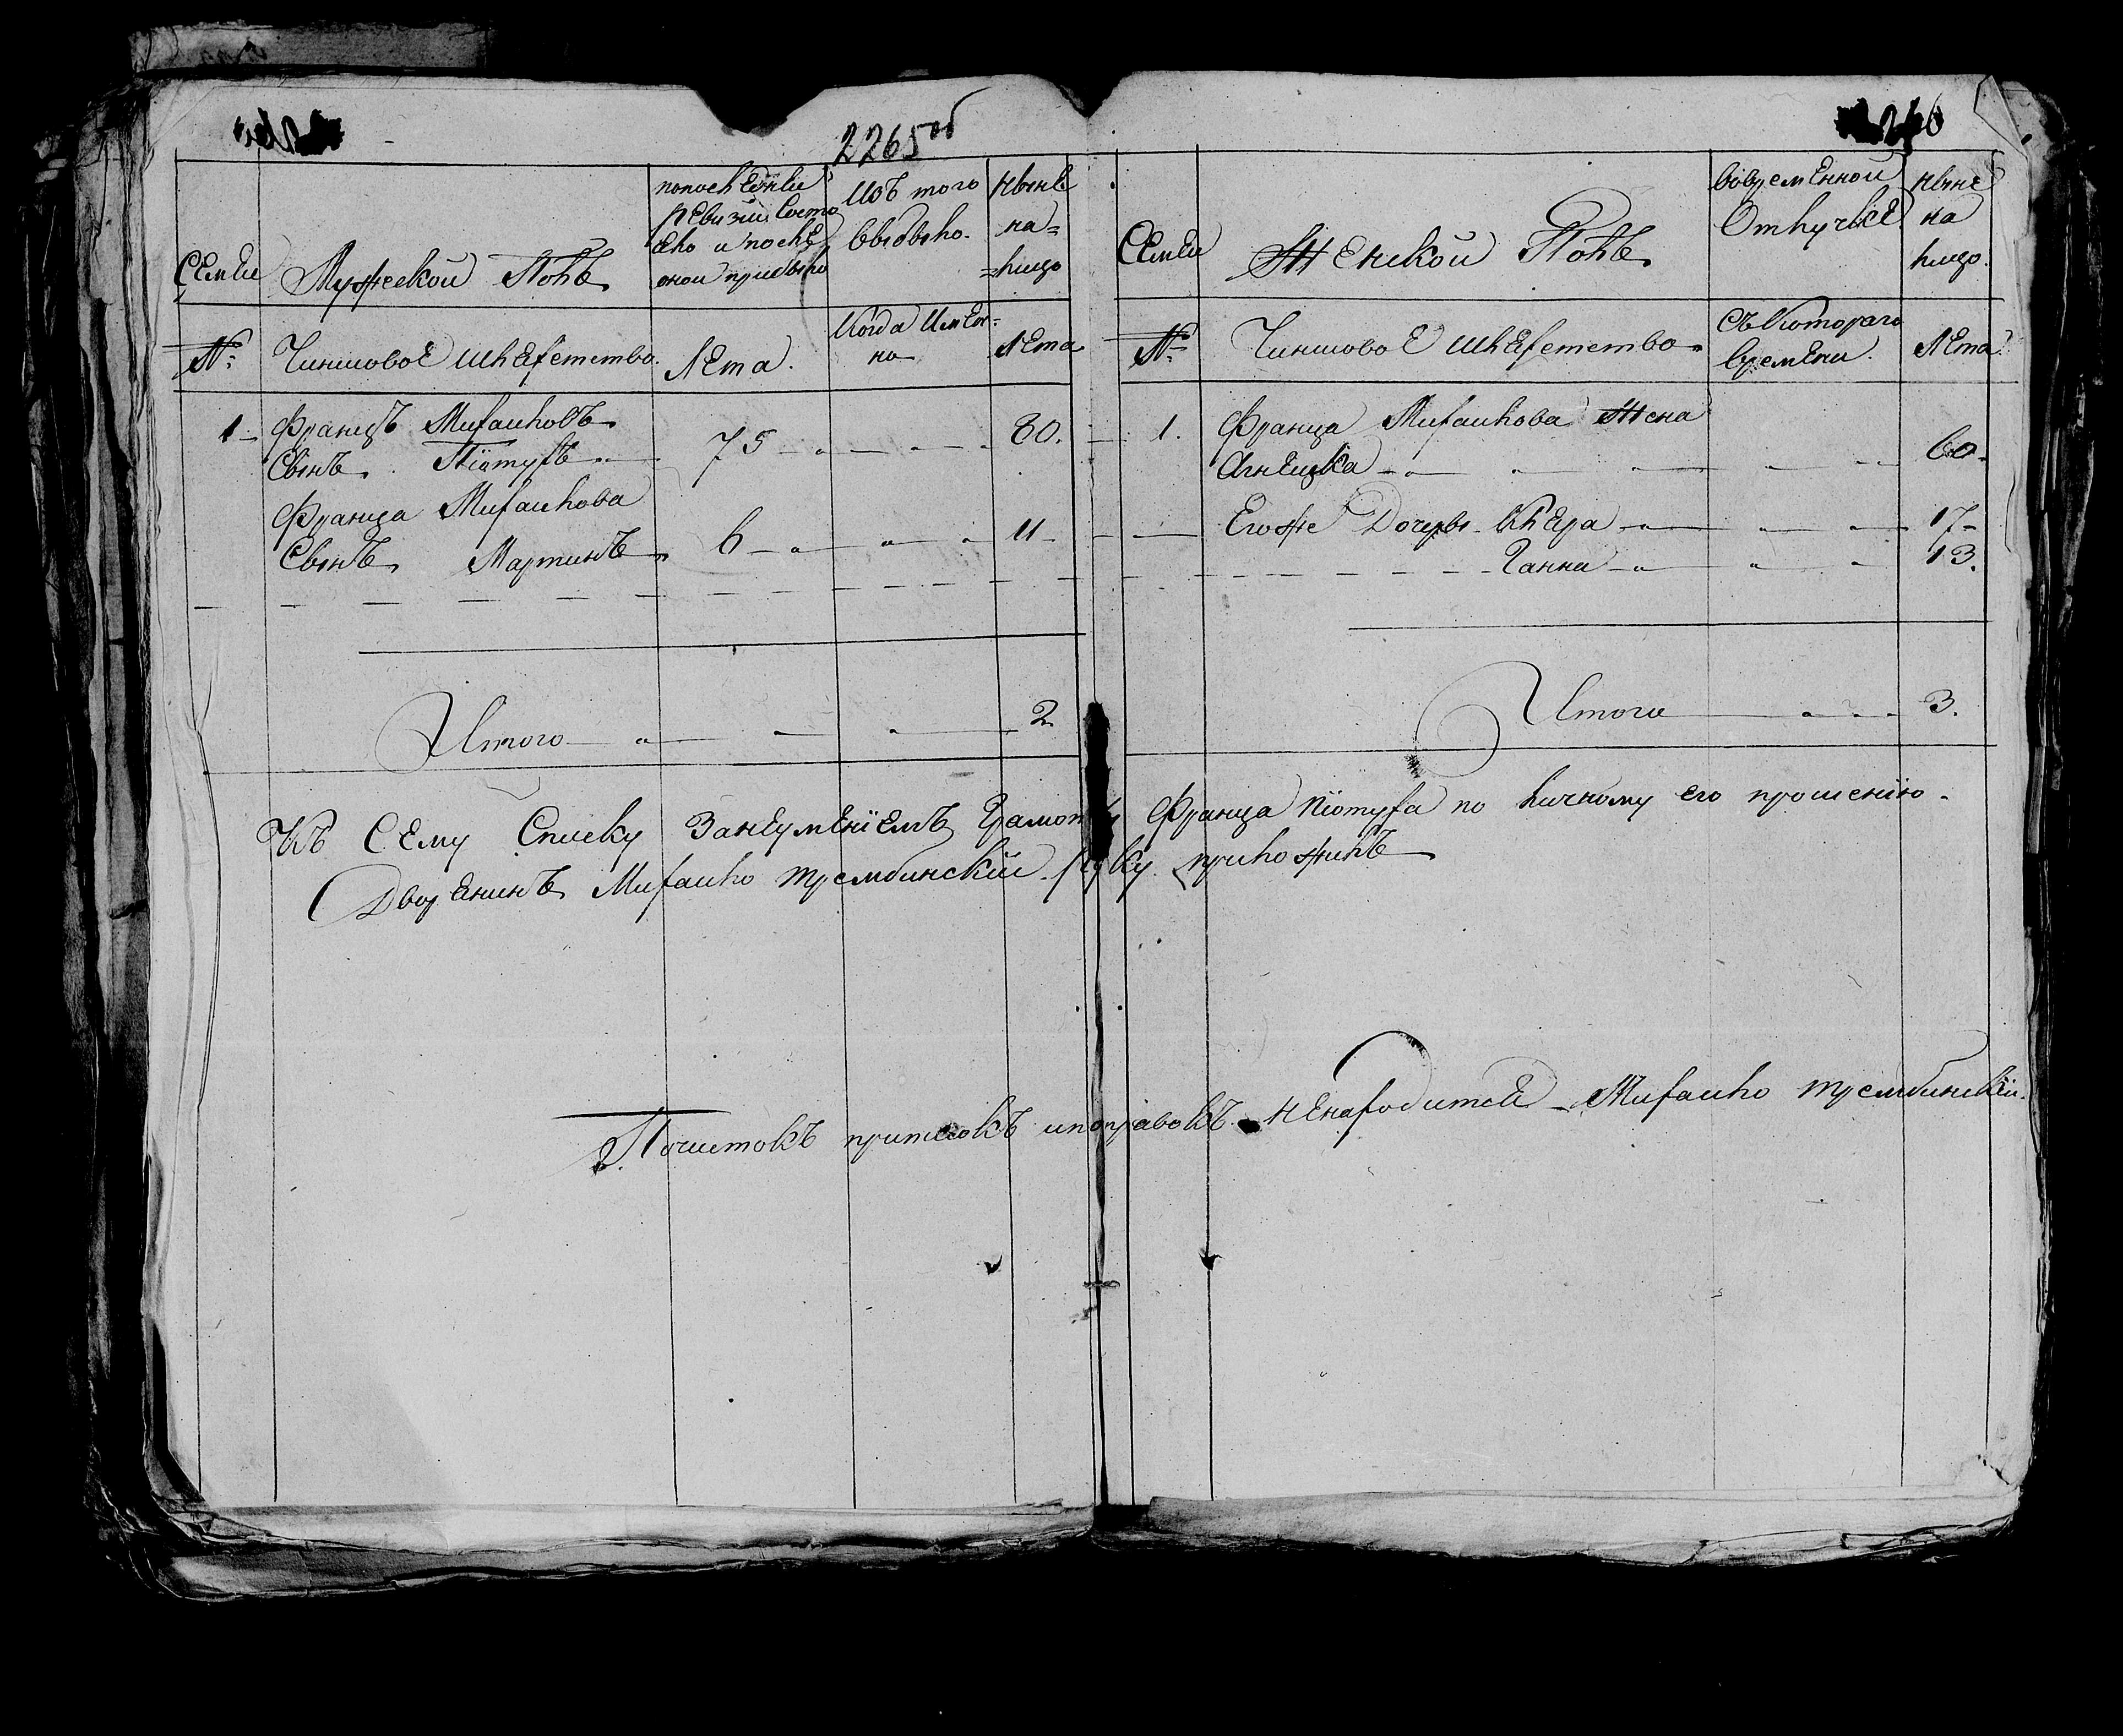 2265об
266
Семьи
Мужеской Полъ
попоследнѣи
ревизіи Состо
яло и после
оной прибыло
Изъ того
выбыло.
Нынѣ
на=
=лицо
№:
Чиншовое шляхетство.
Лета.
Когда Имен=
но
Лета
1
Францъ Михайловъ
Сынъ Піотухъ
75
80.
Франца Михайлова
Сынъ Мартинъ
6
11
Итого
2
Семьи
Женской Полъ
вовременной
Отлучке
Ныне
на
лицо.
№:
Чиншовое шляхетство
Съ Котораго
времени.
Лета.
1.
Франца Михайлова Жена
Агнешка
60
Егоже Дочеры Клера
17
Ганна
13.
Итого
3.
Къ Сему Списку Занеуменіемъ Грамоты Франца Піотуха по личному его прошению
Дворенинъ Михайло Трембинскій руку приложилъ
Почистокъ приписокъ ипоправокъ ненаходится Михайло Трембинскій.